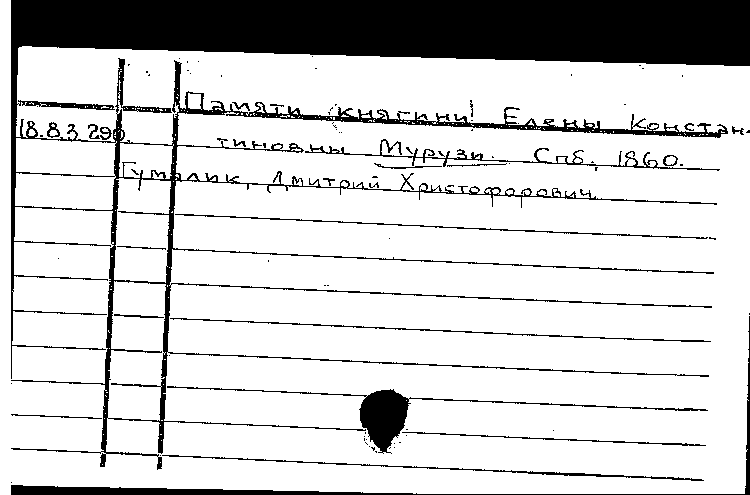 Памяти (княгини) Елены Констан-
18.8.3.290.
тиновны Мурузи. Спб., 1860.
Гумалик, Дмитрий Христофорович